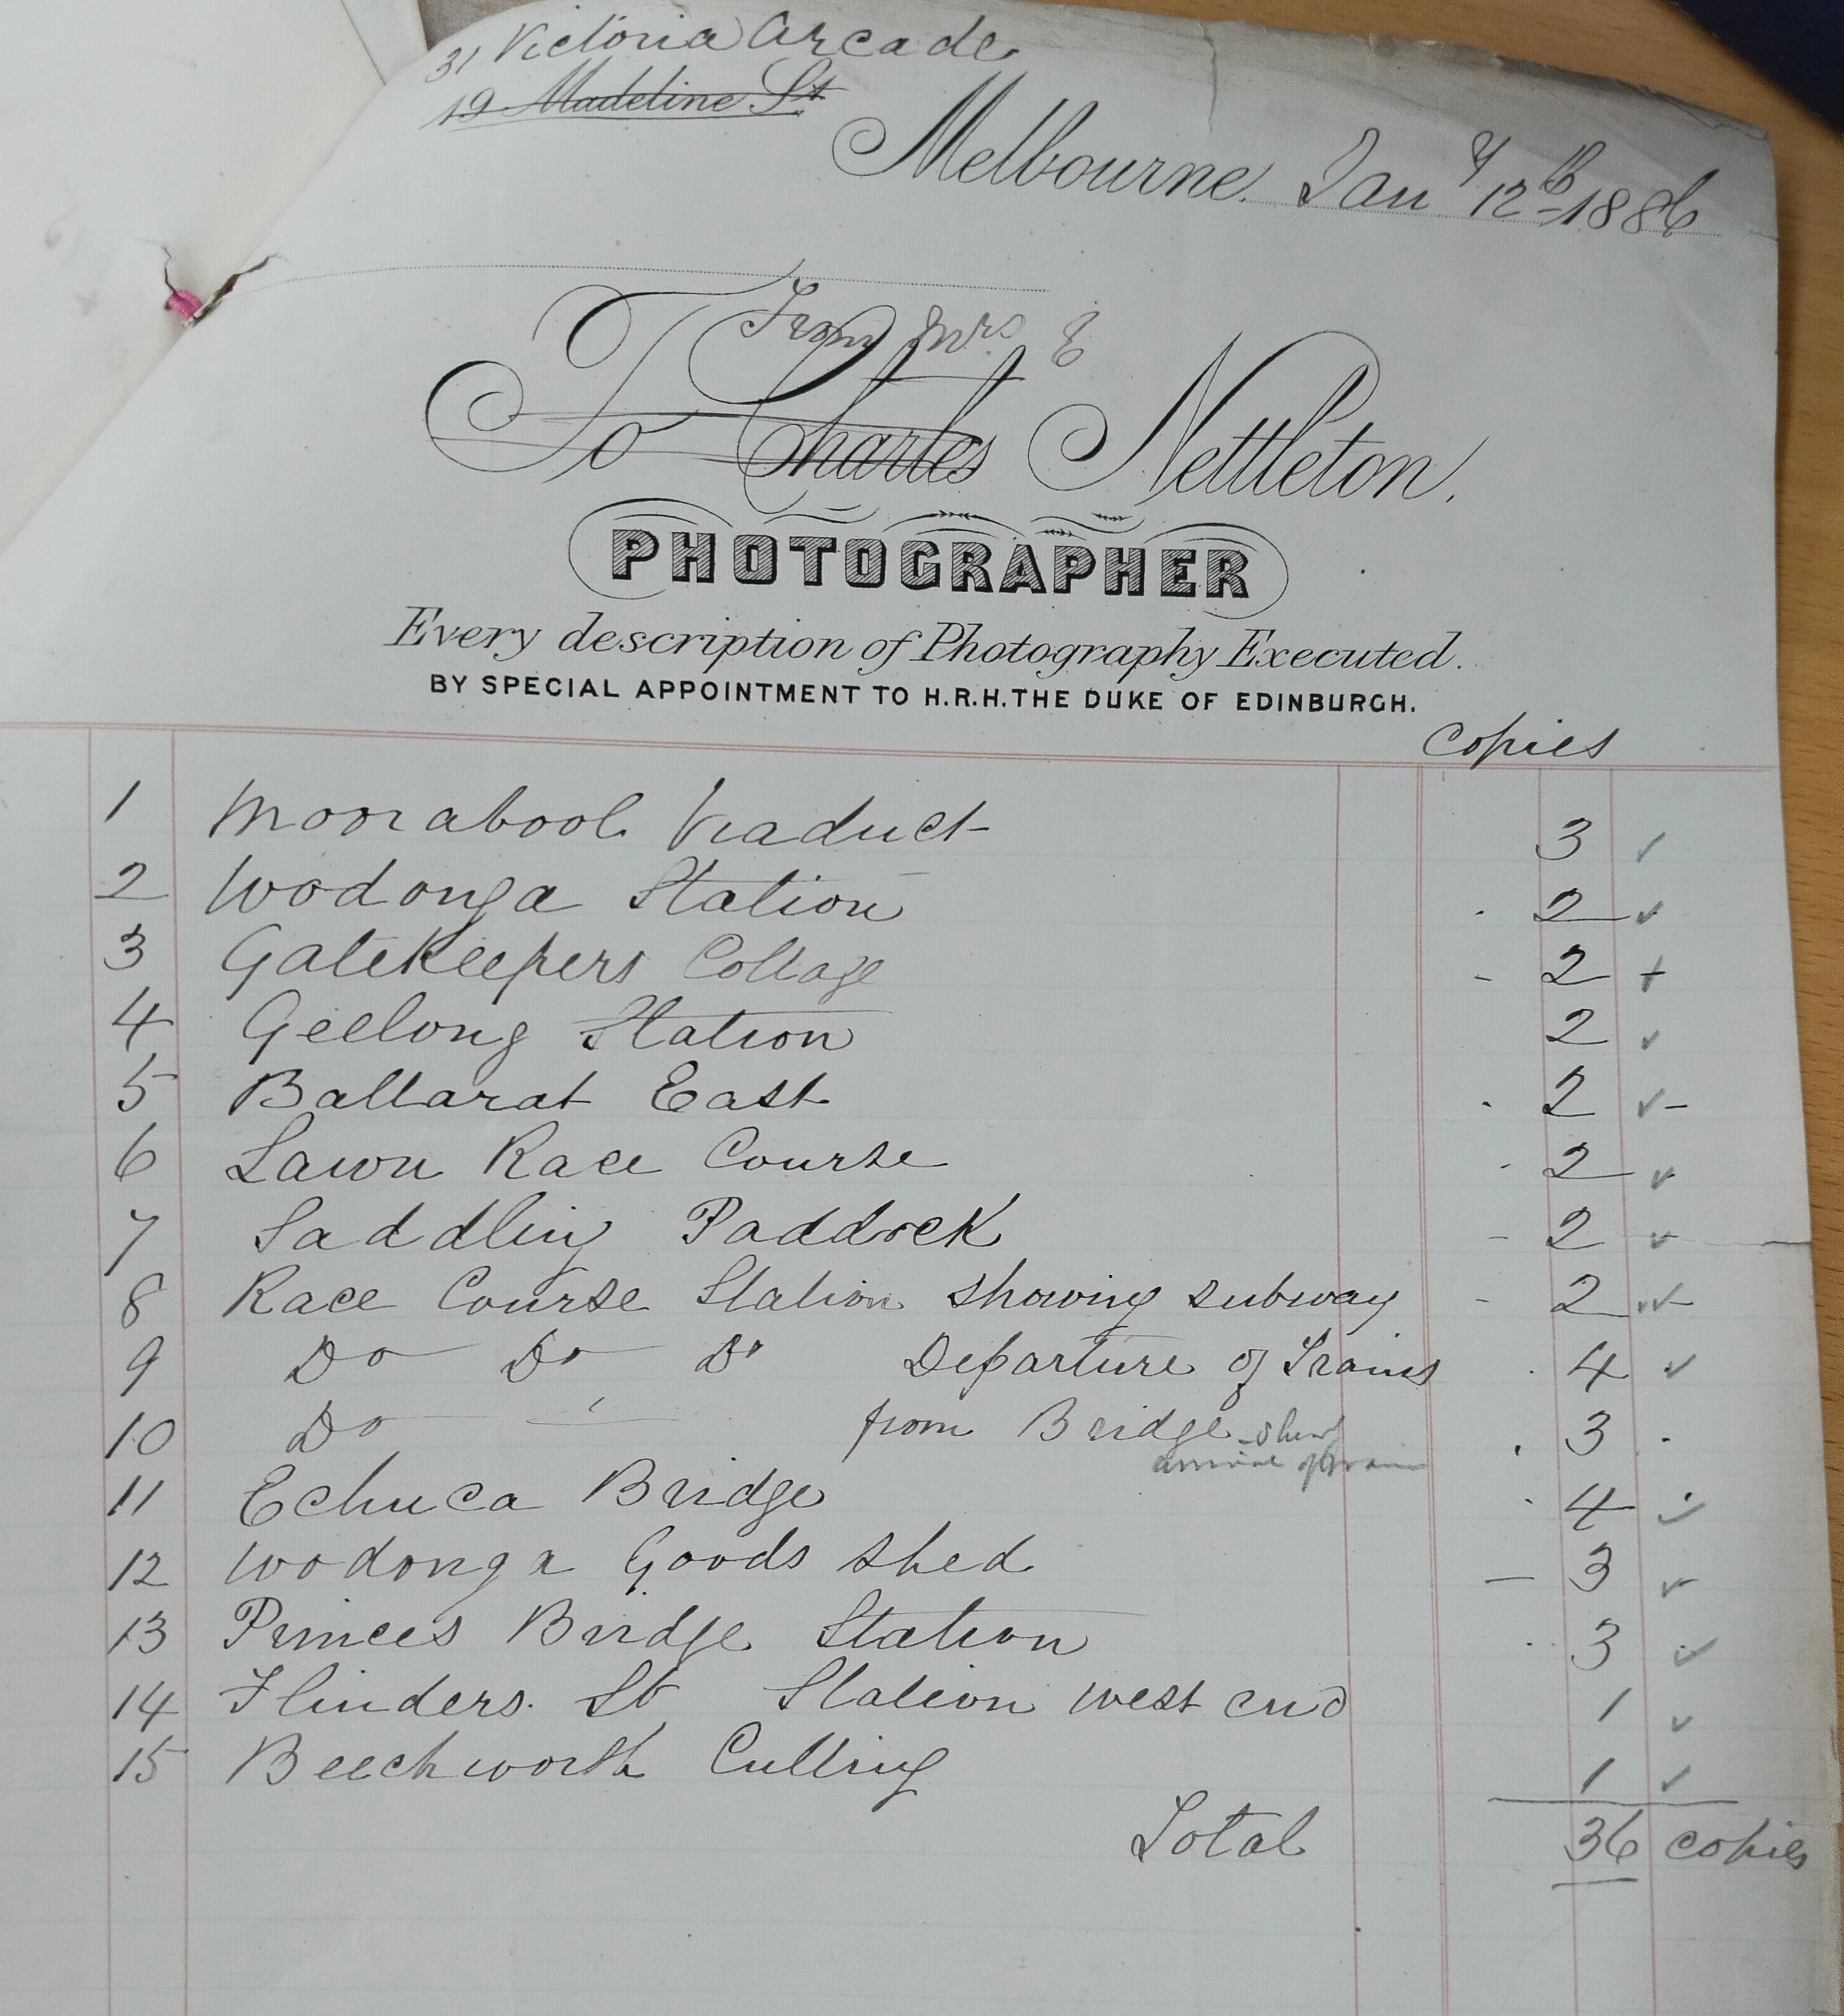 31 Victoria Arcade
19 Madeline St
Melbourne. Jany 12th 1886
From Mrs E
To Charles Nettleton.
PHOTOGRAPHER
Every description of Photography Executed.
BY SPECIAL APPOINTMENT TO H.R.H. THE DUKE OF EDINBURGH.
Copies
1 Moorabool Viaduct 3
2 Wodonga Station 2
3 Gatekeepers Cottage 2
4 Geelong Station 2
5 Ballarat East 2
6 Lawn Race Course 2
7 Saddling Paddock 2
8 Race Course Station showing subway 2
9 Do Do Do Departure of Trains 4
10 Do from Bridge 3
arrival of train
11 Echuca Bridge 4
12 Wodonga Goods shed 3
13 Princes Bridge Station 3
14 Flinders St Station west end 1
15 Beechworth Cutting 1
Total 36 copies